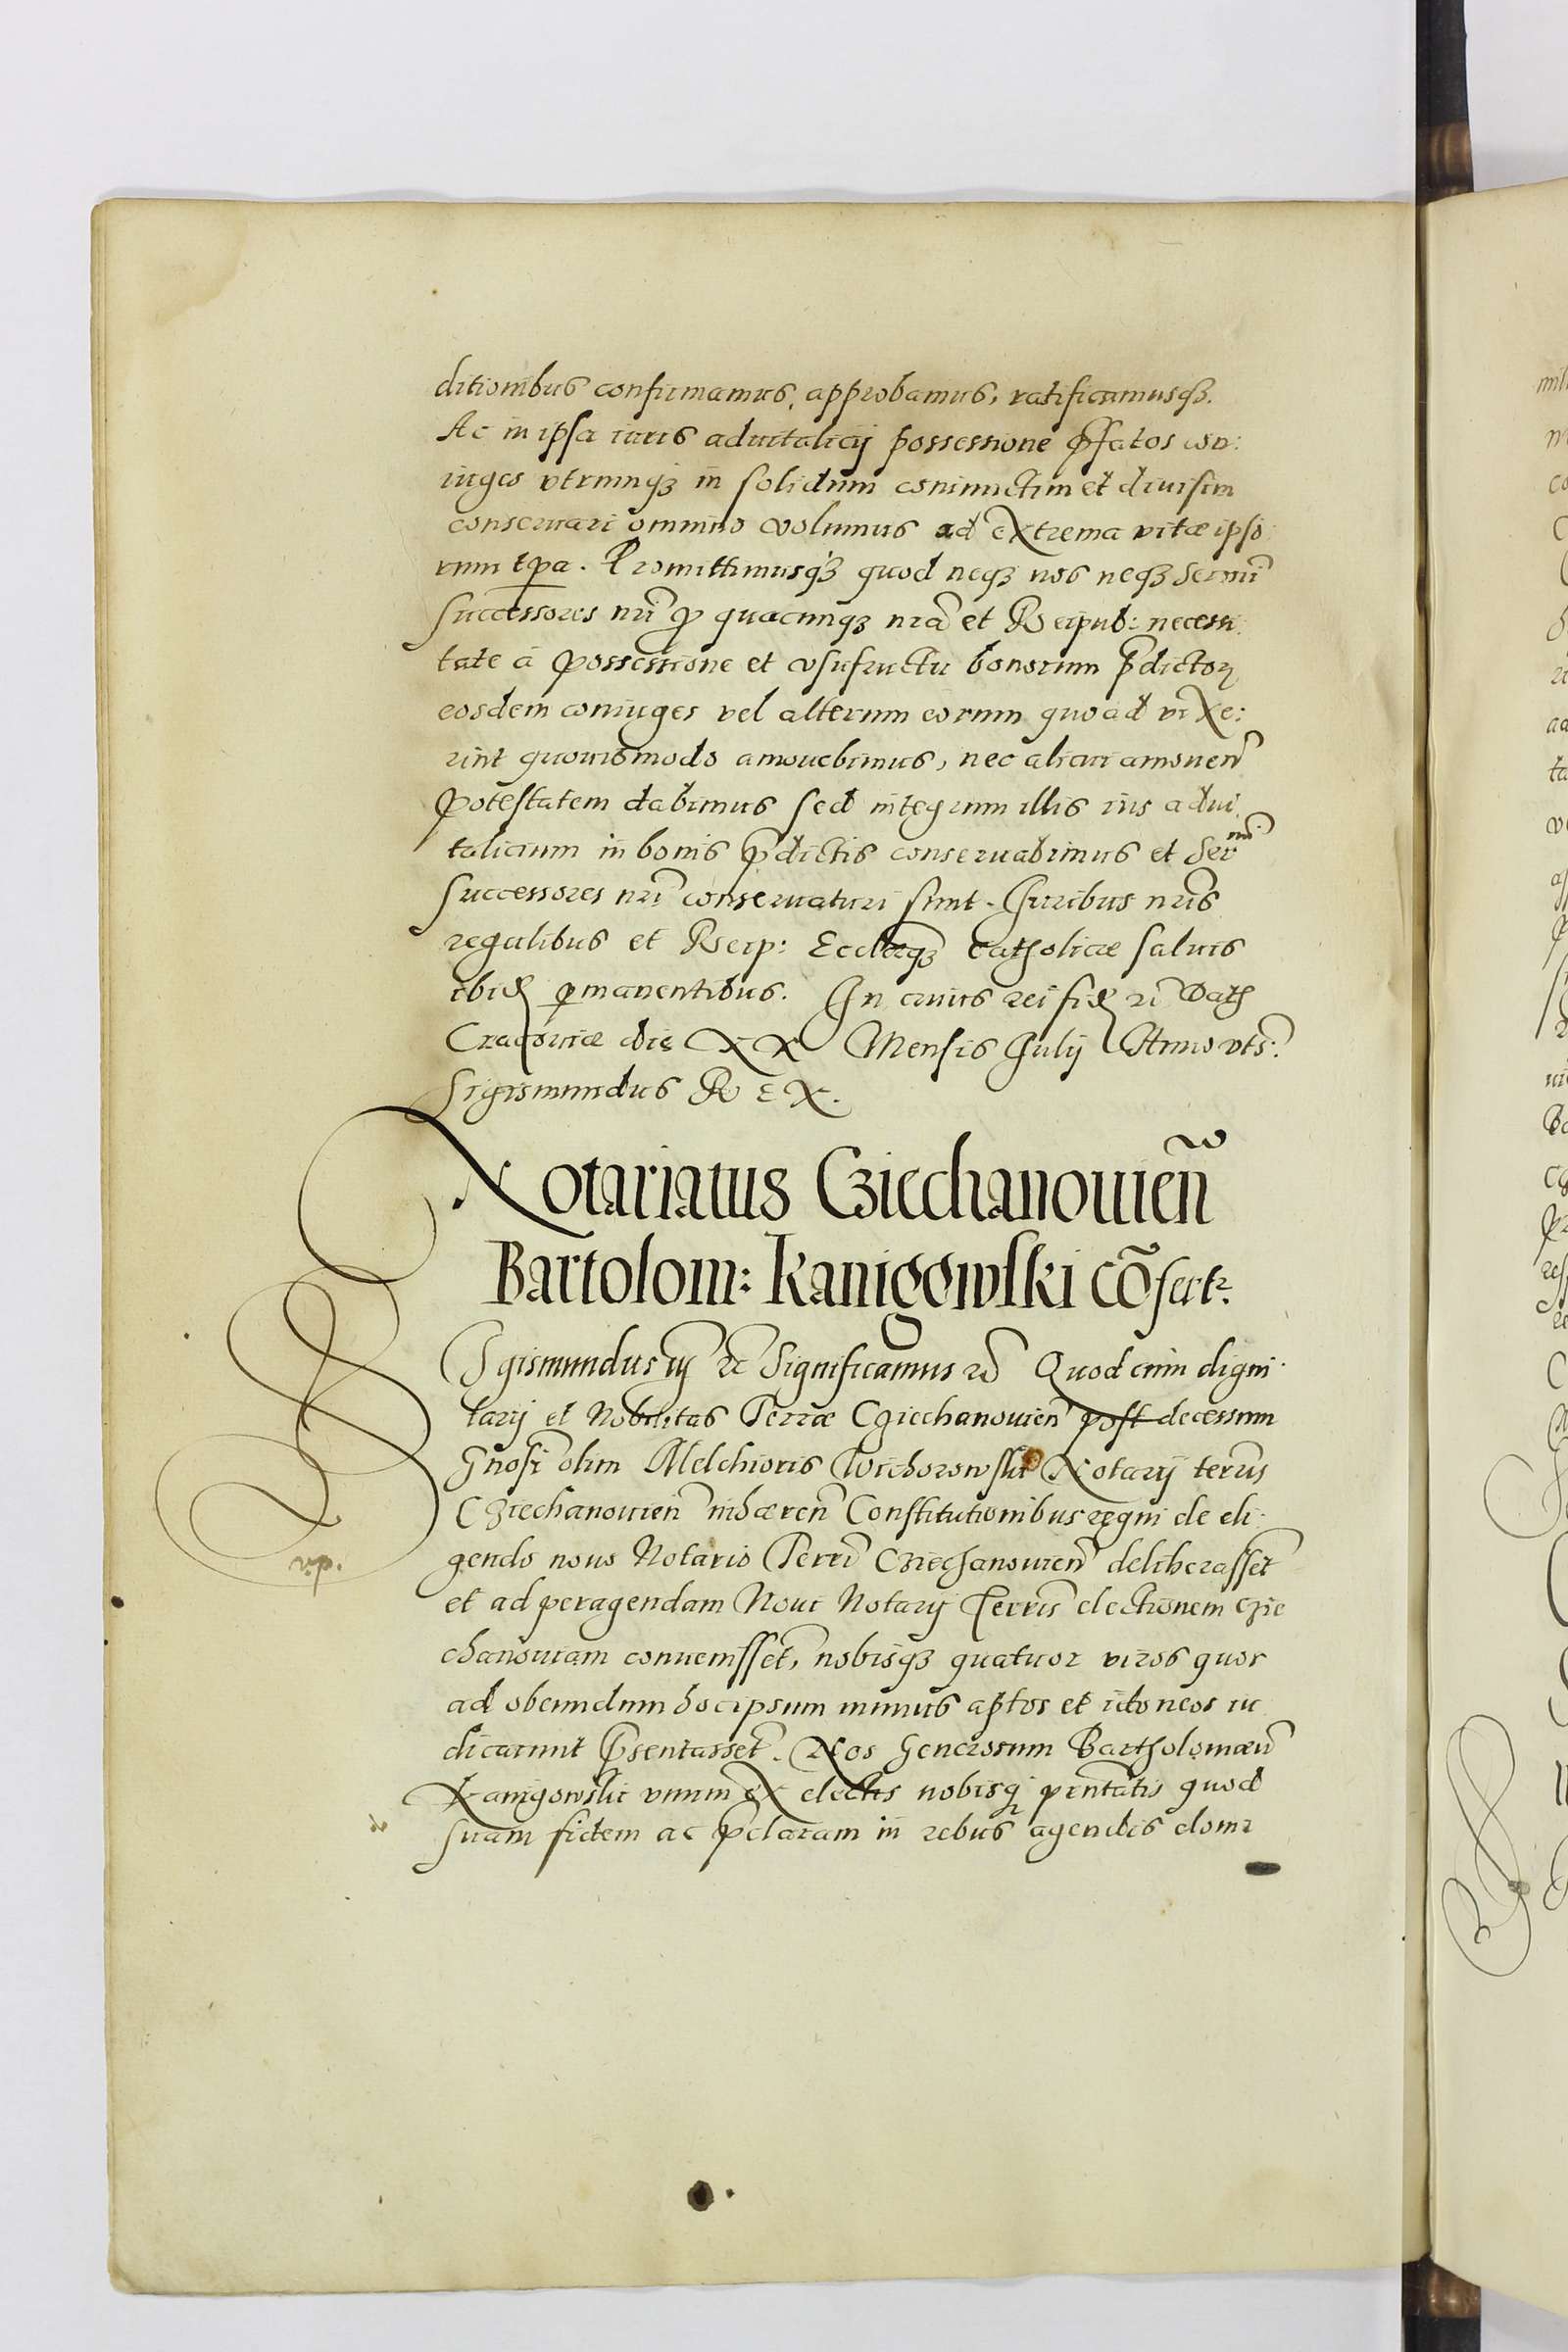 ditionibus confirmamus, approbamus, ratificamusqꝫ.
Ac in ipsa iuris aduitalicij possessione p̄fatos con:
iuges vtrumqꝫ in solidum coniunctim et diuisim
conseruari omnino volumus ad extrema vitæ ipso
rum tp̄a. Promittimusqꝫ quod neqꝫ nos neqꝫ Sermi
successores nr̄i ꝓ quacunqꝫ nr̄a et Reipub: necessi
tate à possessione et vsufructu bonorum p̄dictoꝝ
eosdem coniuges vel alterum eorum quoad vixe:
rint quouismodo amouebimus, nec alicui amouen̄
potestatem dabimus sed integrum illis ius adui
talicium in bonis p̄dictis conseruabimus et Ser mi
successores nr̄i conseruaturi sunt. Iuribus nr̄is
regalibus et Reip: Ecclesięqꝫ Catholicæ saluis
ibid ꝑmanentibus. In cuius rei fid ꝛc̄ Dat
Cracouiæ die XX Mensis Iulij Anno vts:
Sigismundus REX.
Notariatus Cziechanouien̄
Bartolom: Kanigowski cōfertꝛ
Sigismundus iij ꝛc̄ Significamus ꝛc̄ Quod cum digni
tarij et Nobilitas Terræ Cziechanouien̄ post decessum
Gnosi olim Melchioris Wichorowski Notarij terris
Cziechanouien̄ inhæren̄ Constitutionibus regni de eli
gendo nouo Notario Terri Cziechanouien̄ deliberasset
et ad peragendam Noui Notarij Terris electionem Czie
chanouiam conuenisset, nobisqꝫ quatuor viros quos
ad obeundum hoc ipsum munus aptos et idoneos iu
dicarunt p̄sentasset. Nos Generosum Bartholomæū
Kanigowski vnum ex electis nobisqꝫ p̄ntatis quod
suam fidem ac p̄claram in rebus agendis domi